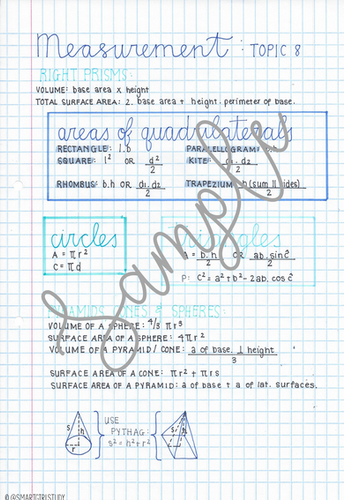 Measurement : TOPIC 8
RIGHT PRISMS:
VOLUME: base area x height
TOTAL SURFACE AREA: 2. base area + height. perimeter of base.
areas of quadrilaterals
RECTANGLE: l.b PARALLELOGRAM:
SQUARE: l² OR d²/2 KITE: d₁.d₂/2
RHOMBUS: b.h OR d₁.d₂/2 TRAPEZIUM: h(sum || sides)/2
circles triangles
A = πr² A = b.h/2 OR ab.sinĉ/2
C = πd P: c² = a² + b² - 2ab.cosĉ
PYRAMIDS, CONES & SPHERES:
VOLUME OF A SPHERE: 4/3 πr³
SURFACE AREA OF A SPHERE: 4πr²
VOLUME OF A PYRAMID / CONE: a of base. ⊥ height/3
SURFACE AREA OF A CONE: πr² + πrs
SURFACE AREA OF A PYRAMID: a of base + a of lat. surfaces.
s h r USE PYTHAG: s h
s² = h² + r²
Sample
@SMARTGIRLSTUDY